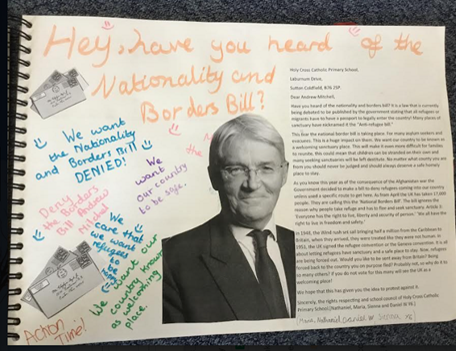 Hey, have you heard of the
Nationality and
Borders Bill?
We want
the Nationality
and Borders Bill
DENIED!
We
want
our country
to be safe.
Deny
the Borders
Bill Andrew
Mitchel
We
care that
we want
refugees
to be
We want our
country known
as welcoming
place
Action
Time!
Holy Cross Catholic Primary School,
Sutton Coldfield,
Dear Andrew Mitchell,
Have you heard of the nationality and borders bill? It is a law that is currently
being debated to be published by the government stating that all refugees or
migrants have to have a passport to legally enter the country! Many places of
sanctuary have nicknamed it the "Anti-refugee bill."
This year the national borders bill is taking place. For many explain seekers and
everyone. This is a huge impact on them. We want our country to be known as
a welcoming sanctuary place. This will make it even more difficult for families
to reunite, this could mean that children can be stranded on their own and
many seeking sanctuaries will be left destitute. No matter what country you are
from you should never be judged and should always deserve a safe homely
place to stay.
As you know this year as of the consequence of the Afghanistan war the
Government decided to make a bill to deny refugees coming into our country
unless used a specific route to get here.
people. They are calling this the 'National Borders Bill'. The bill ignores the
reason why people take refuge and has to flee and seek sanctuary. Article 3:
'Everyone has the right to live, liberty and security of person.' We all have the
right to live in freedom and safety.'
In 1948, the Wind rush set sail bringing half a million from the Caribbean to
Britain, when they arrived, they were treated like they were not human. In
1951, the UN signed the refugee convention or the Geneva convention. It is all
about letting refugees have sanctuary and a safe place to stay. Now, refugees
are being forced out. Would you like to be sent away from Britain? Being
forced back to the country you on purpose fled? Probably not, so why do it to
so many others? If you do not vote for this many will see the UK as a
welcoming place!
We hope that this has given you the idea to protest against it.
Sincerely, the rights respecting and school council of Holy Cross Catholic
Primary School.(Nathaniel, Maria, Sienna and Daniel W Y6.)
Maria, Nathaniel Daniel.W Sienna Y6